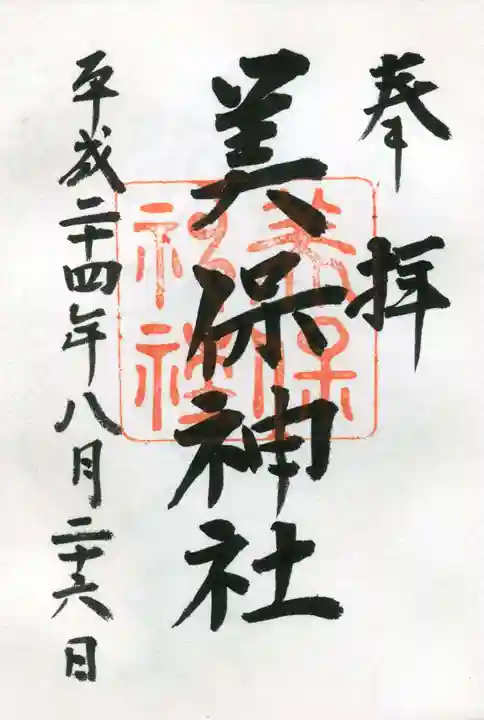 奉拝
美保神社
平成二十四年八月二十六日
美保
神社